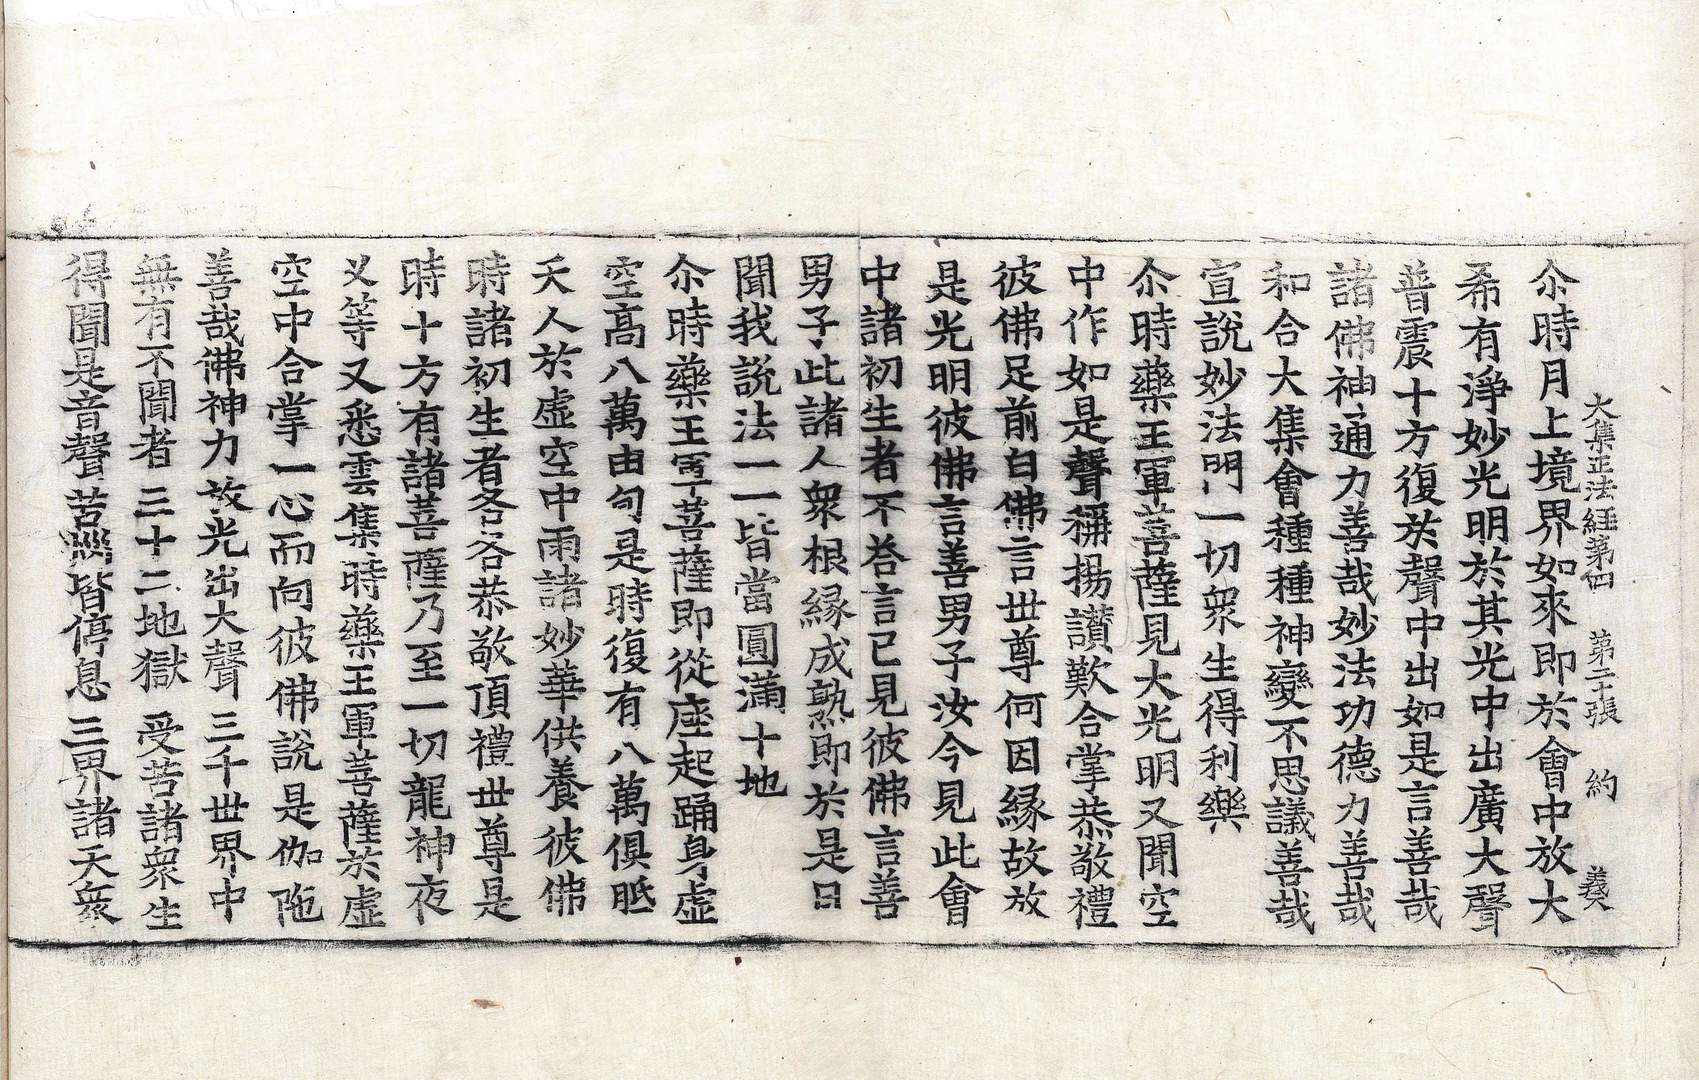 大集正法經第四　第二十張　約　義
尒時月上境界如來即於會中放大
希有淨妙光明於其光中出廣大聲
普震十方復於聲中出如是言善哉
諸佛神通力善哉妙法功德力善哉
和合大集會種種神變不思議善哉
宣說妙法門一切衆生得利樂
尒時藥王軍菩薩見大光明又聞空
中作如是聲稱揚讃歎合掌恭敬禮
彼佛足前白佛言世尊何因緣故放
是光明彼佛言善男子汝今見此會
中諸初生者不荅言已見彼佛言善
男子此諸人衆根緣成熟即於是日
聞我說法一一皆當圓滿十地
尒時藥王軍菩薩即從座起踊身虛
空高八萬由旬是時復有八萬俱胝
天人於虛空中雨諸妙華供養彼佛
時諸初生者各各恭敬頂禮世尊是
時十方有諸菩薩乃至一切龍神夜
叉等又悉雲集時藥王軍菩薩於虛
空中合掌一心而向彼佛說是伽陁
善哉佛神力　放光出大聲　三千世界中
無有不聞者　三十二地獄　受苦諸衆生
得聞是音聲　苦惱皆停息　三界諸天衆